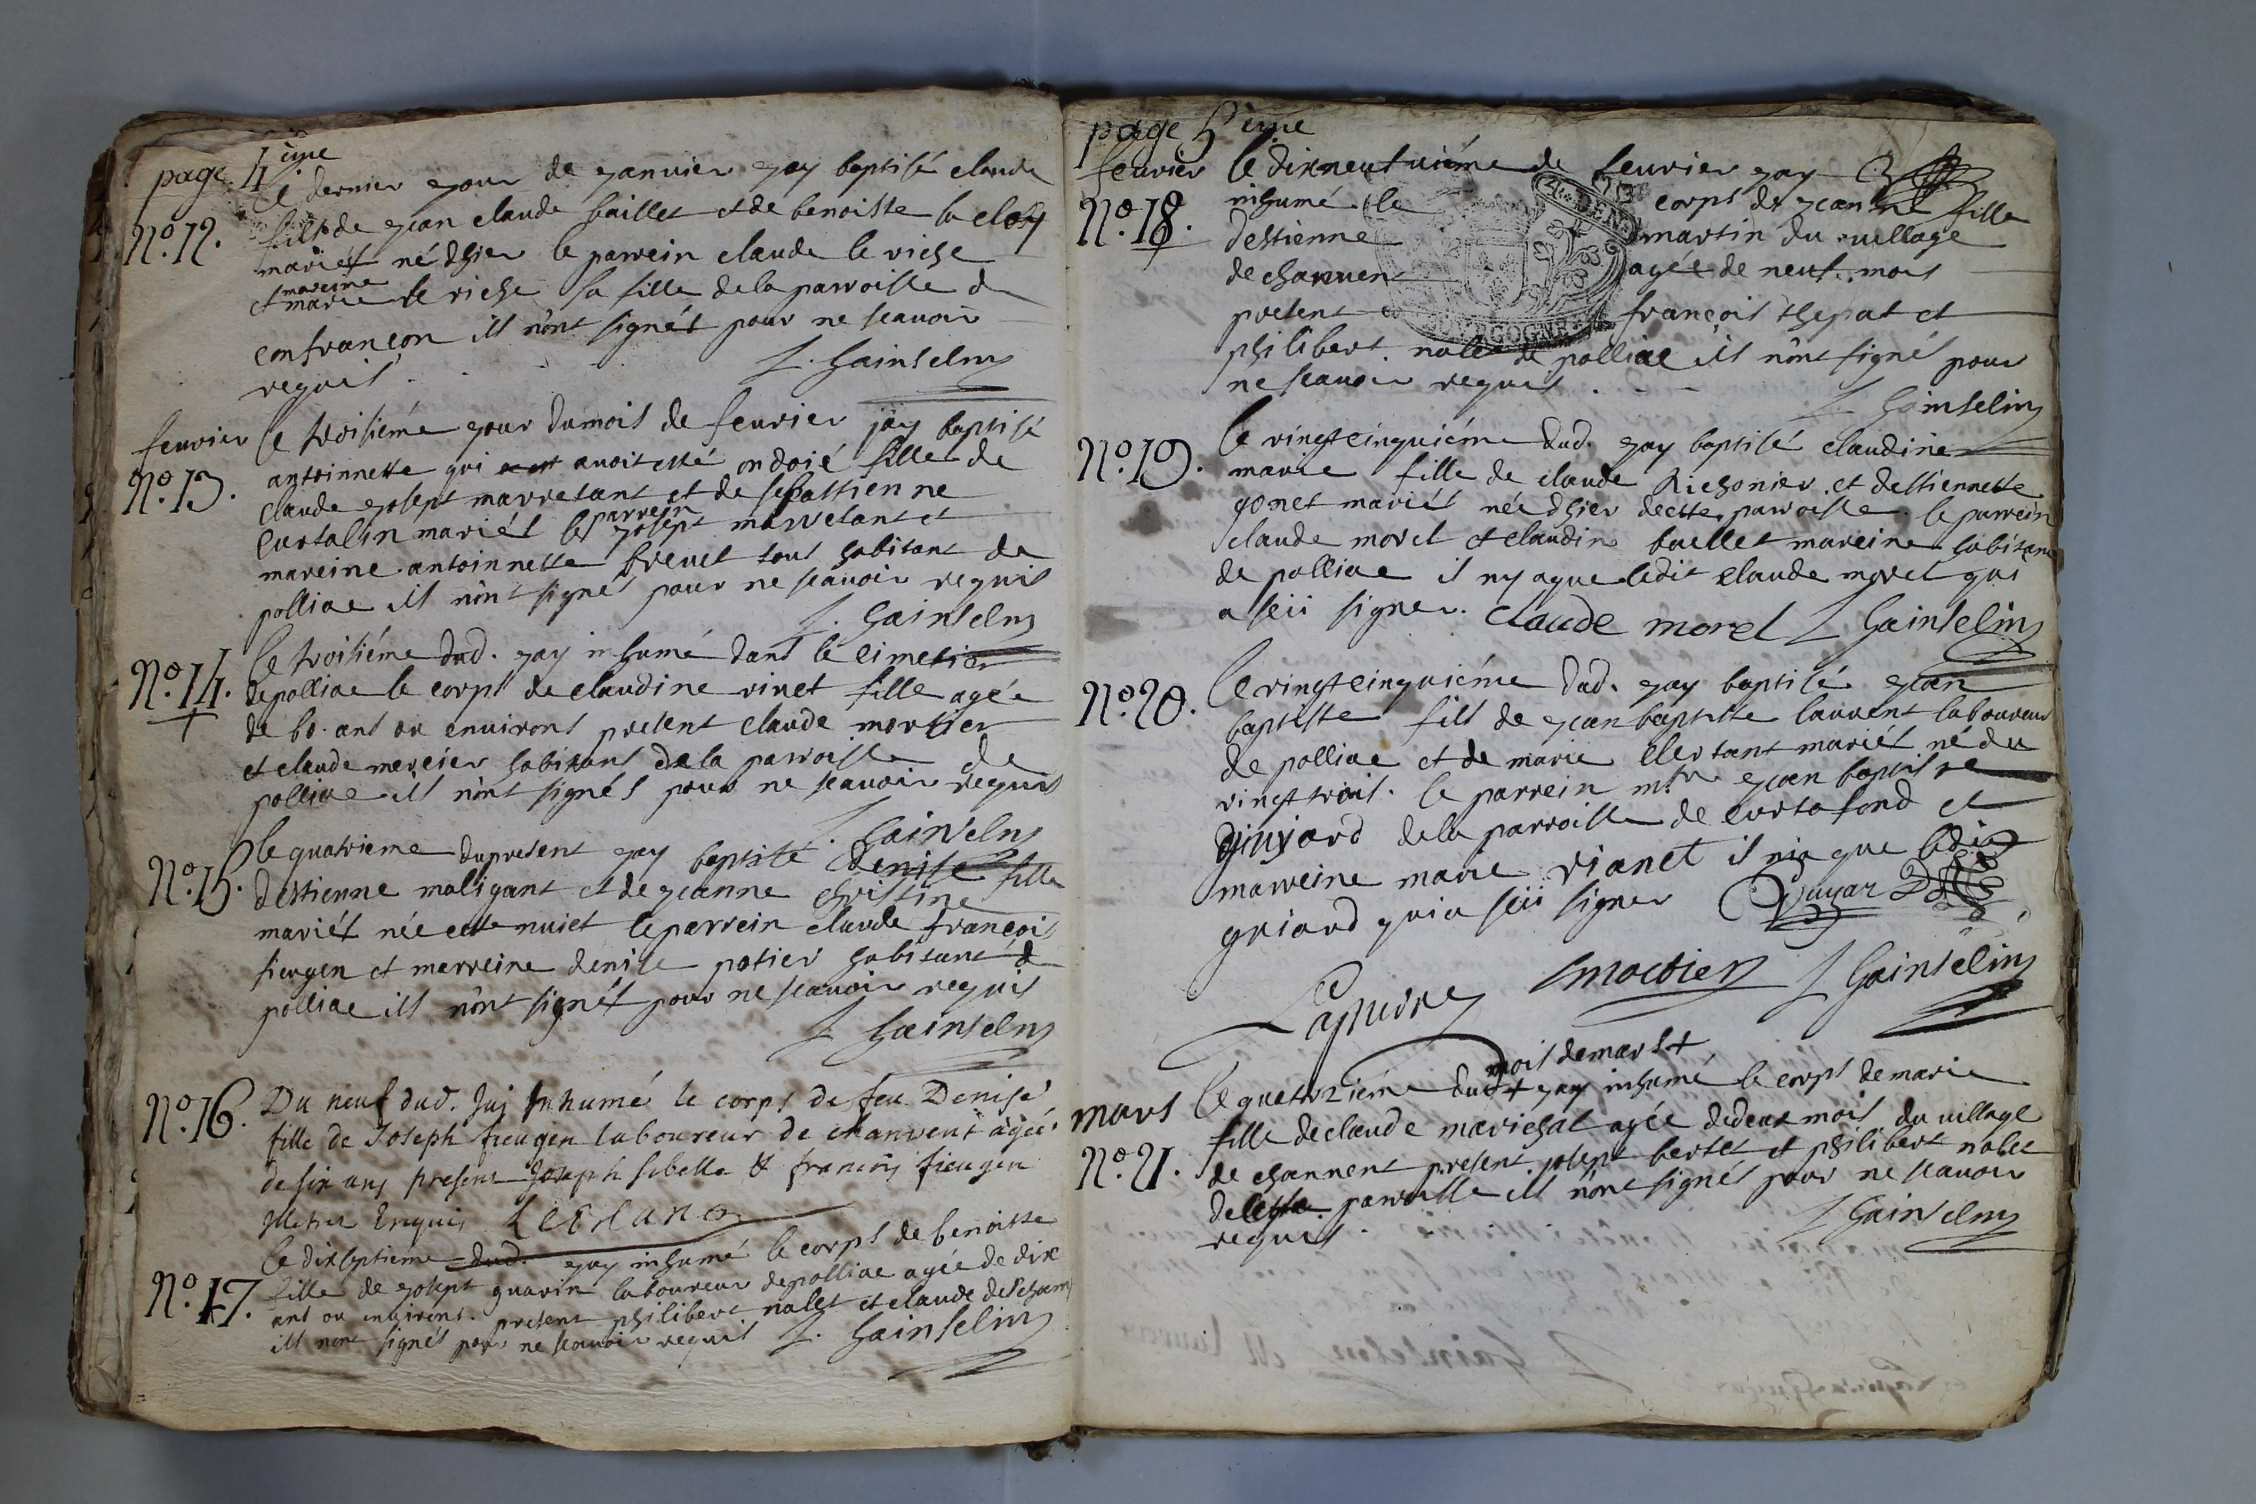 page 4 eme
le dernier your de yanvier yay baptisé claude
No. 12. fils de yean claude baillet et de benoiste la
mariés né dhier le parrein claude le riche
et mareine marie le riche sa fille de la parroisse de
confrançon ils n'ont signés pour ne scauoir
requis
L. hainselin
feurier le troisiéme your du mois de feurier jay baptisé
No. 13. antoinnette qui auoit esté ondoié fille de
claude yosept marretant et de sebastienne
curtalin mariés le parrein yosept marretant et
mareine antoinnette breuet tous habitant de
polliac ils n'ont signés pour ne scauoir requis
L. hainselin
No. 14. le troisiéme dud. yay inhumé dans le cimetier
de polliac le corps de claudine vinet fille agée
de 60. ans ou environs present claude mortier
et claude mercier habitans de la parroisse de
polliac ils n'ont signés pour ne scauoir requis
L. hainselin
No. 15. le quatrieme du present yay baptisé denise fille
destienne maligant et de yeanne christine
mariés née cette nuict le parrein claude françois
fieugen et merreine denise potier habitant de
polliac ils n'ont signés pour ne scauoir requis
L. hainselin
No. 16. Du neuf dud. Jai Inhumé le corps de feu Denise
fille de Joseph fieugen laboureur de chanvent agée
de six ans present Joseph sibelle & françois fieugen
Illetrés Enquis
No. 17. le dixseptieme dud. yay inhumé le corps de benoiste
fille de yosept guarin laboureur de polliac agée de dix
ans ou environs. present philibert nalet et claude descham
ils n'ont signés pour ne scauoir requis L. hainselin
page 5 eme
feurier le dixneufuiéme de feurier yay
No. 18. inhumé le corps de yeanne fille
destienne martin du village
de chanuent agée de neuf mois
present françois thepat et
philibert nalet de polliac ils n'ont signés pour
ne scauoir requis
L. hainselin
No. 19. le vingtcinquiéme dud. yay baptisé claudine
marie fille de claude Richonier et destiennette
gonet mariés née dhier de cette parroisse le parrein
claude morel et claudine baillet mareine habitans
de polliac il ny a que ledit claude morel qui
a seü signer. Claude morel L hainselin
No. 20. le vingtcinquiéme dud. yay baptisé yean
baptiste fils de yean baptiste laurent laboureur
de polliac et de marie mariés né du
vingt trois. le parrein mtre yean baptiste
de la parroisse de curtafond et
marreine marie vianet il nia que ledit
guiard qui a seü signer
mortier L hainselin
mois de mars +
mars le quatorziéme dud + yay inhumé le corps de marie
No. 21. fille de claude marichal agée de deux mois du village
de channent present yosept bertet et philibert nalet
de cette parroisse ils n'ont signés pour ne scauoir
requis.
L hainselin